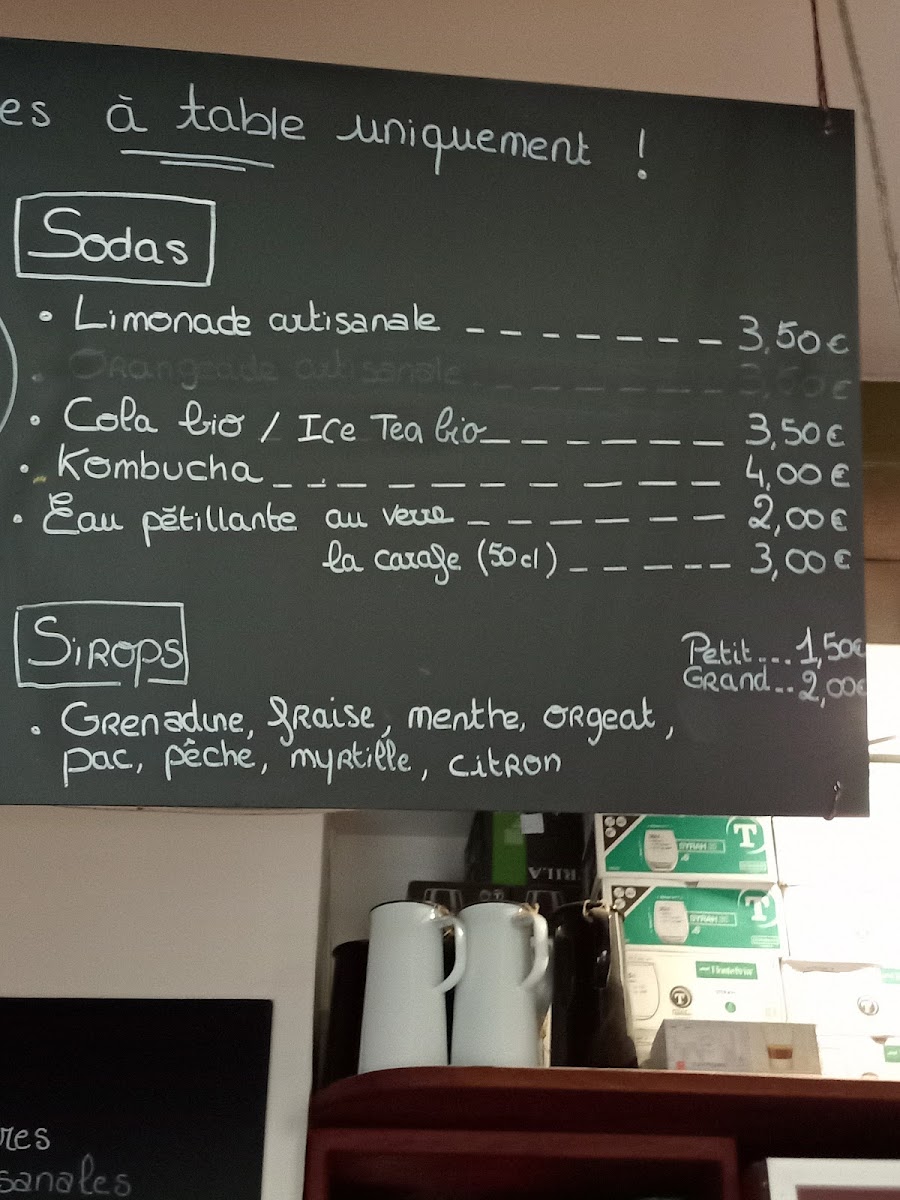 es à table uniquement !
Sodas
• Limonade artisanale ------- 3,50€
• Orangeade artisanale ------- 3,50€
• Cola bio / Ice Tea bio------- 3,50€
• Kombucha--------- 4,00€
• Eau pétillante au verre ------- 2,00€
la carafe (50cl)------ 3,00€
Sirops
Petit...1,50€
Grand..2,00€
• Grenadine, fraise, menthe, orgeat,
pac, pêche, myrtille, citron
T
SYRAH
T
SYRAH
T
res
sanales